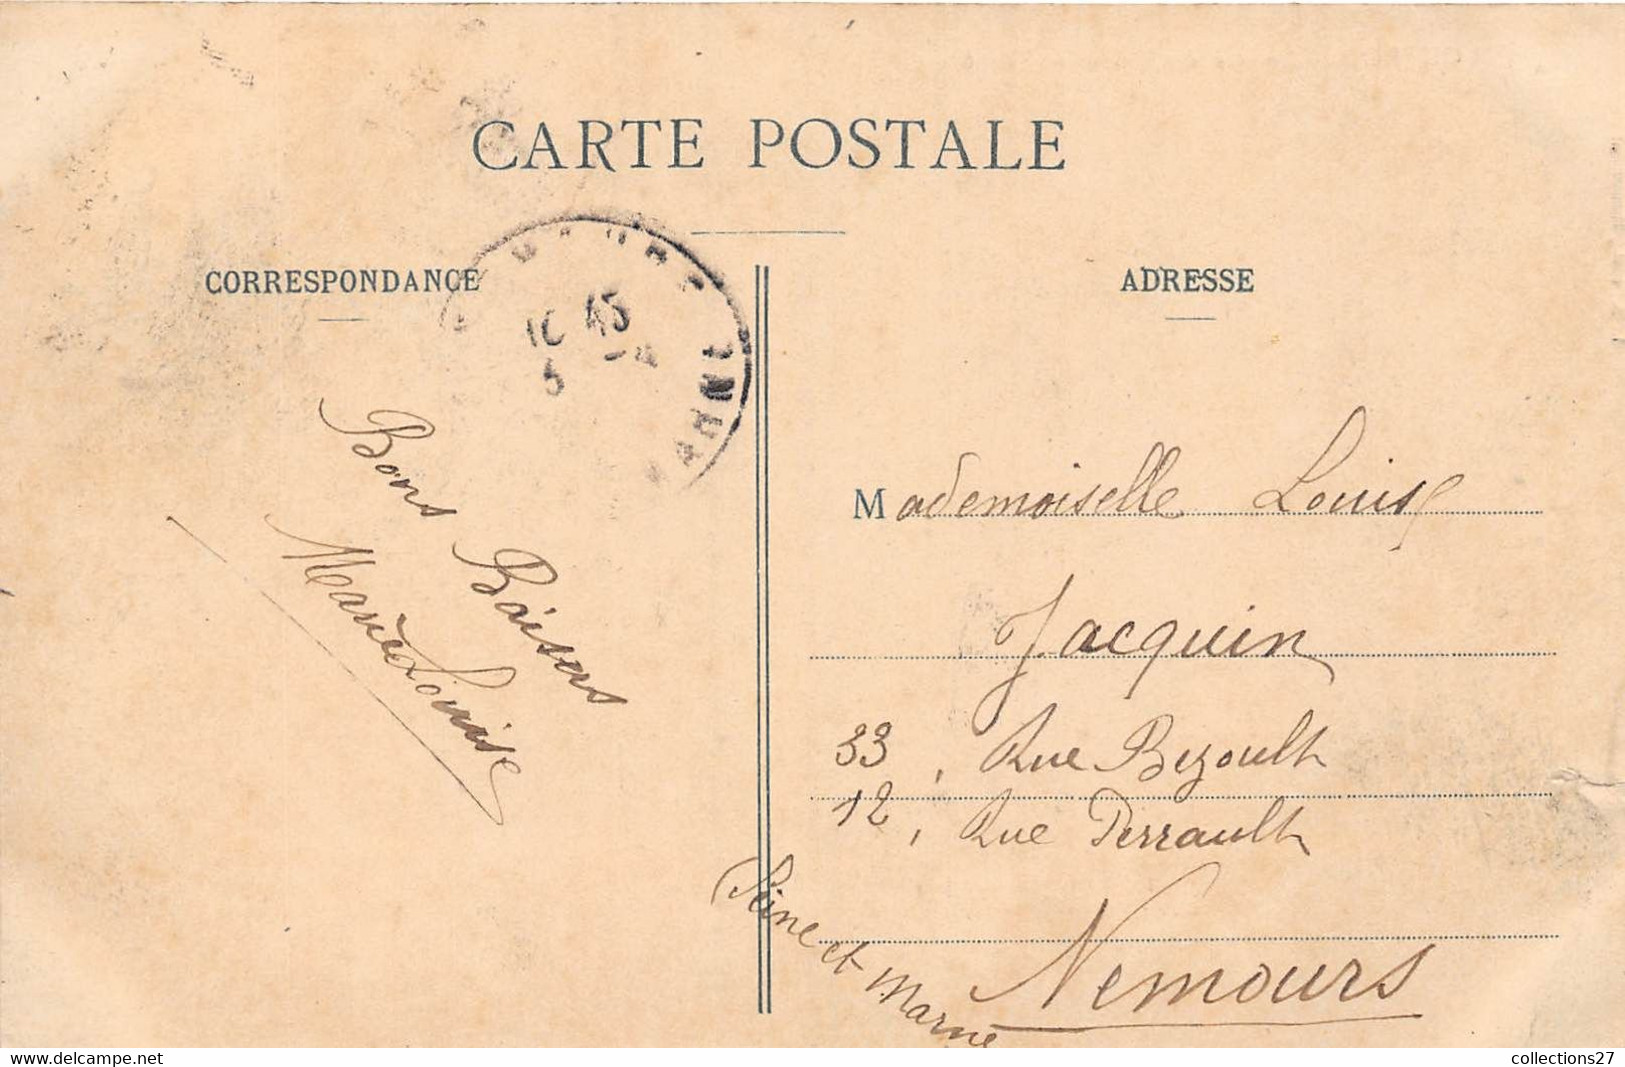 CARTE POSTALE
CORRESPONDANCE
ADRESSE
10 45
5
Bons Baisers
Marie Louise
Mademoiselle Louise
Jacquin
33, Rue Bezoult
12, Rue Perrault
Nemours
(Seine et Marne
collections27